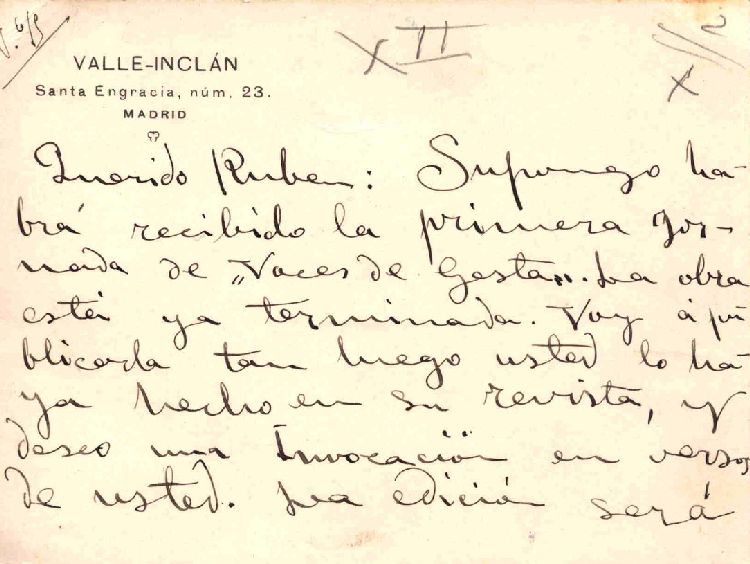 XII
VALLE-INCLÁN
Santa Engracia, núm. 23.
MADRID
Querido Ruben: Supongo ha-
brá recibido la primera Jor-
nada de „Voces de Gesta„. La obra
está ya terminada. Voy á pu
blicarla tan luego usted lo ha-
ya hecho en su revista, y
deseo una Invocación en versos
de usted. La edición será